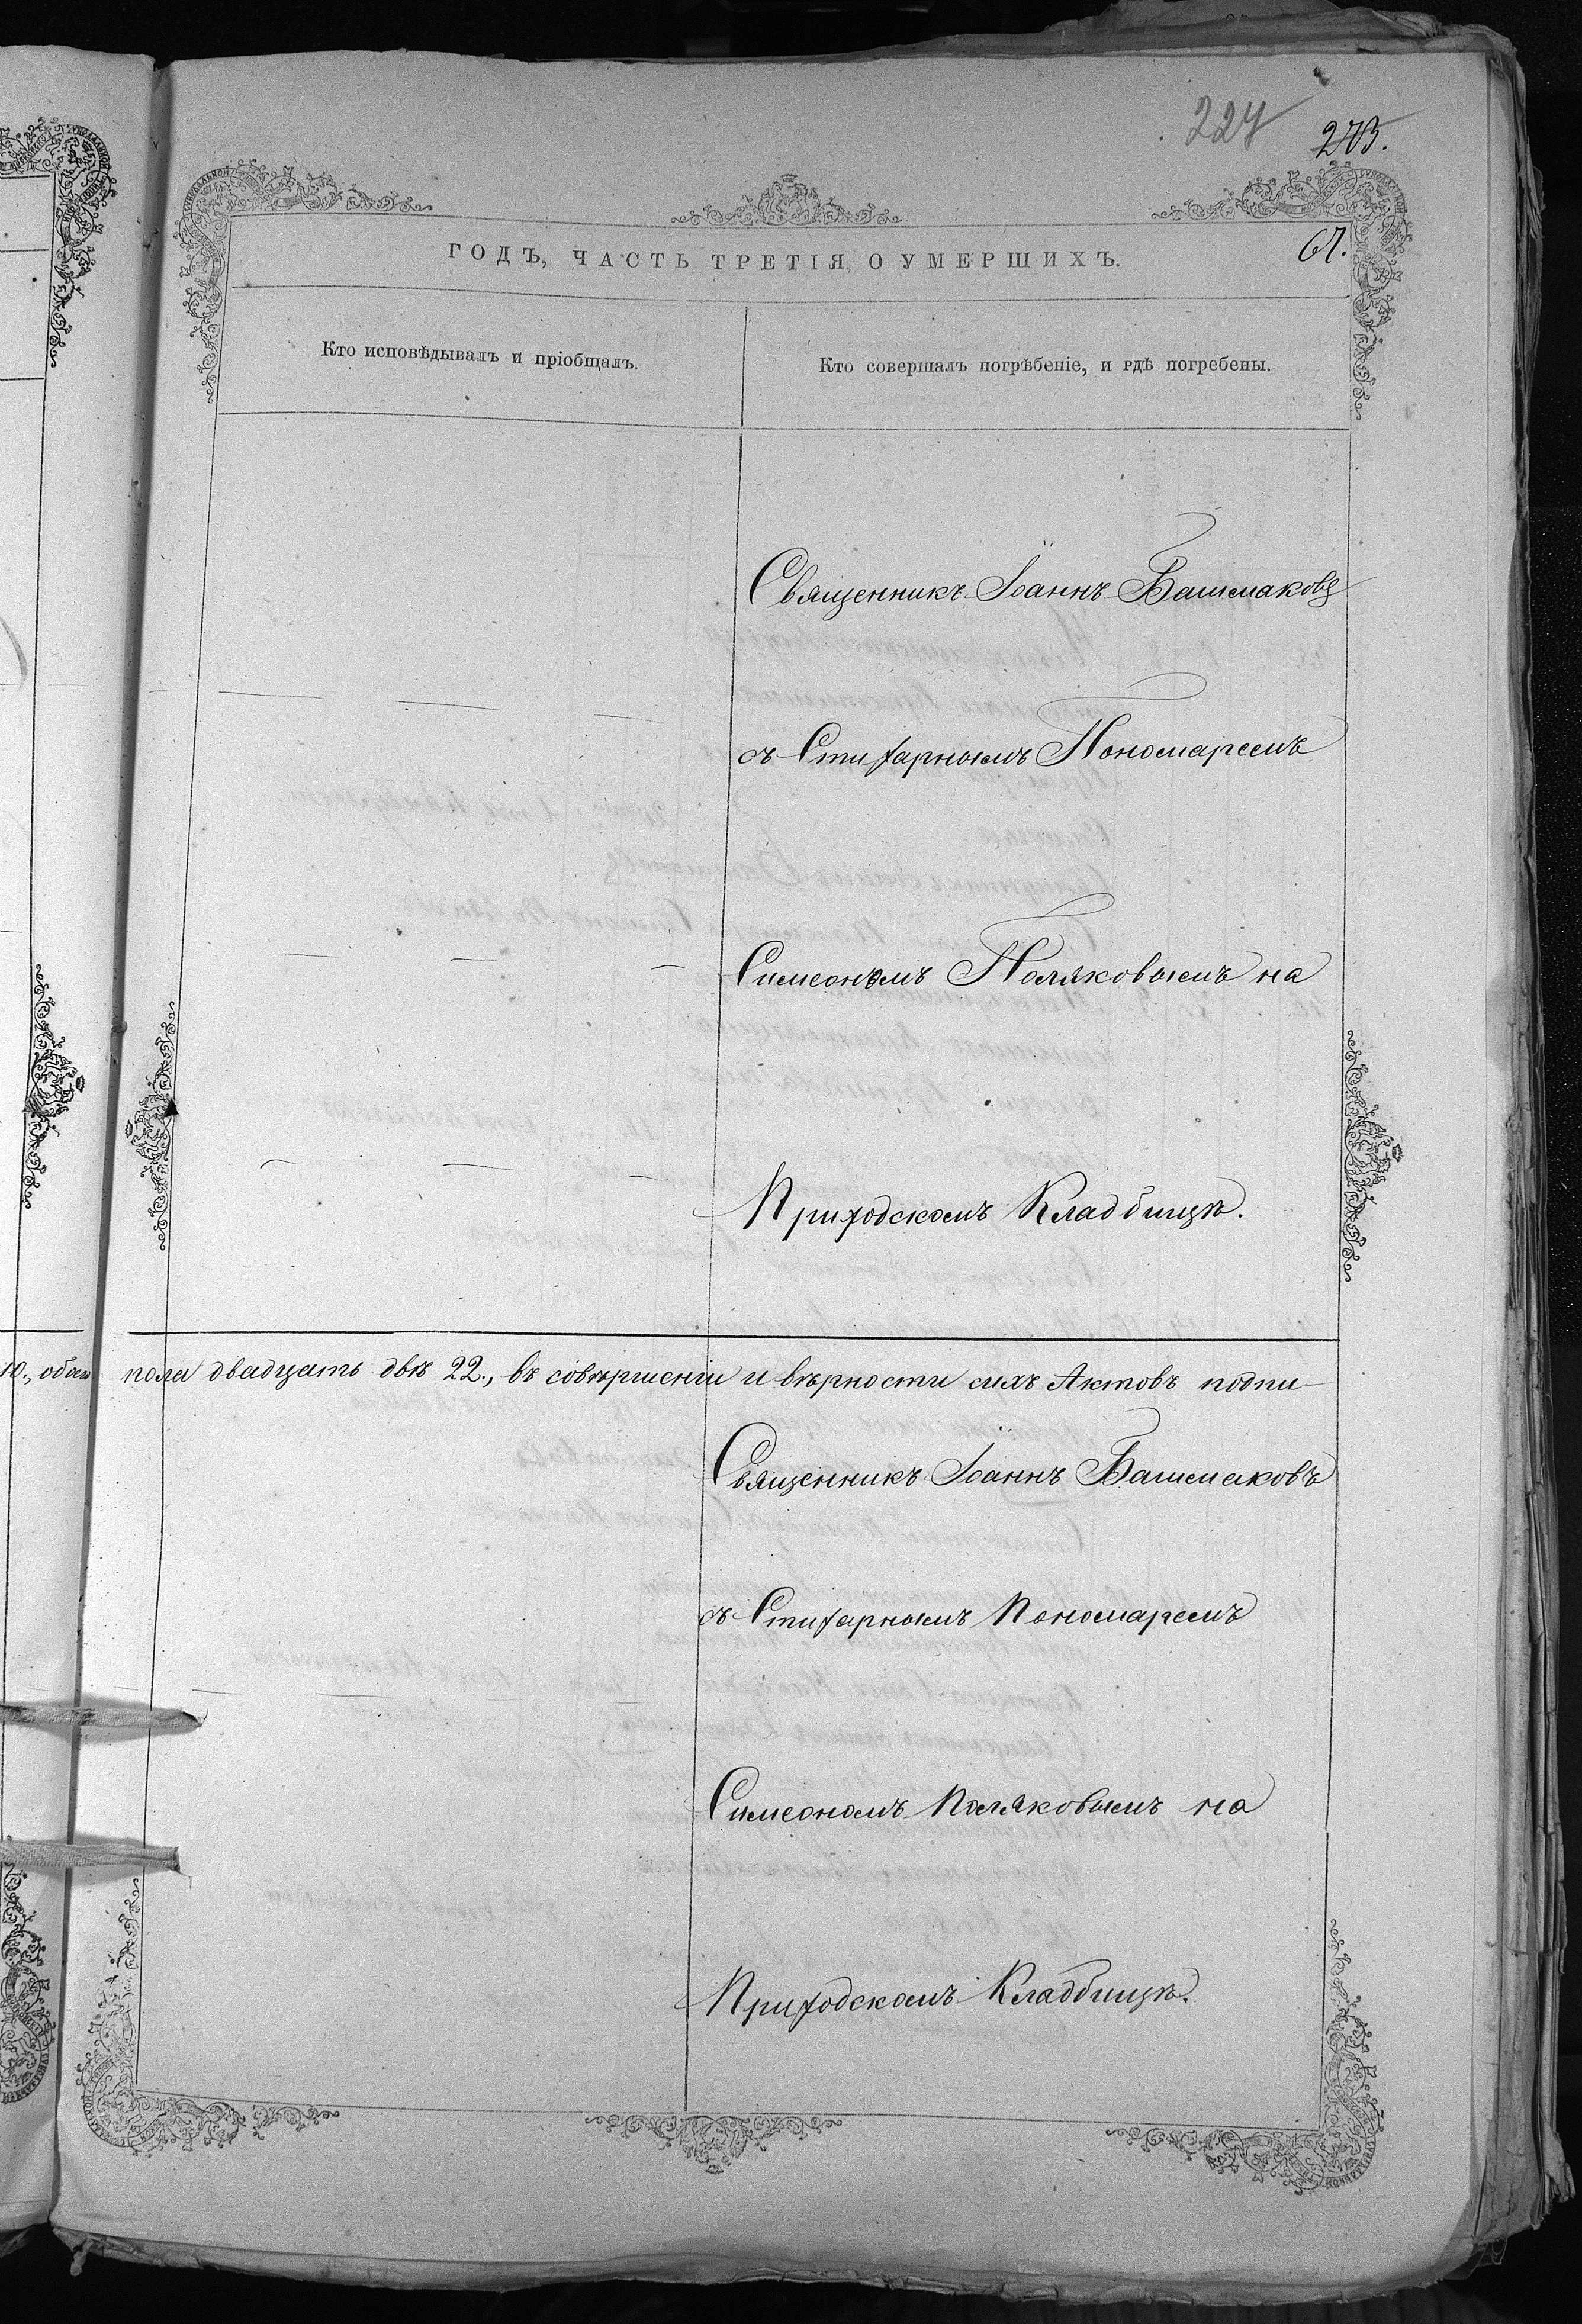 227
273.
67.
ГОДЪ, ЧАСТЬ ТРЕТІЯ, О УМЕРШИХЪ.
Кто исповѣдывалъ и пріобщалъ.
Кто совершалъ погрѣбеніе, и гдѣ погребены.
Священникъ Іоаннъ Башмаковъ
съ Стихарнымъ Пономаремъ
Симеономъ Поляковымъ на
Приходскомъ Кладбищѣ.
10., обоего пола двадцать двѣ 22., въ совѣршеніи и вѣрности сихъ Актовъ подпи-
Священникъ Іоаннъ Башмаковъ
съ Стихарнымъ Пономаремъ
Симеономъ Поляковымъ на
Приходскомъ Кладбищѣ.